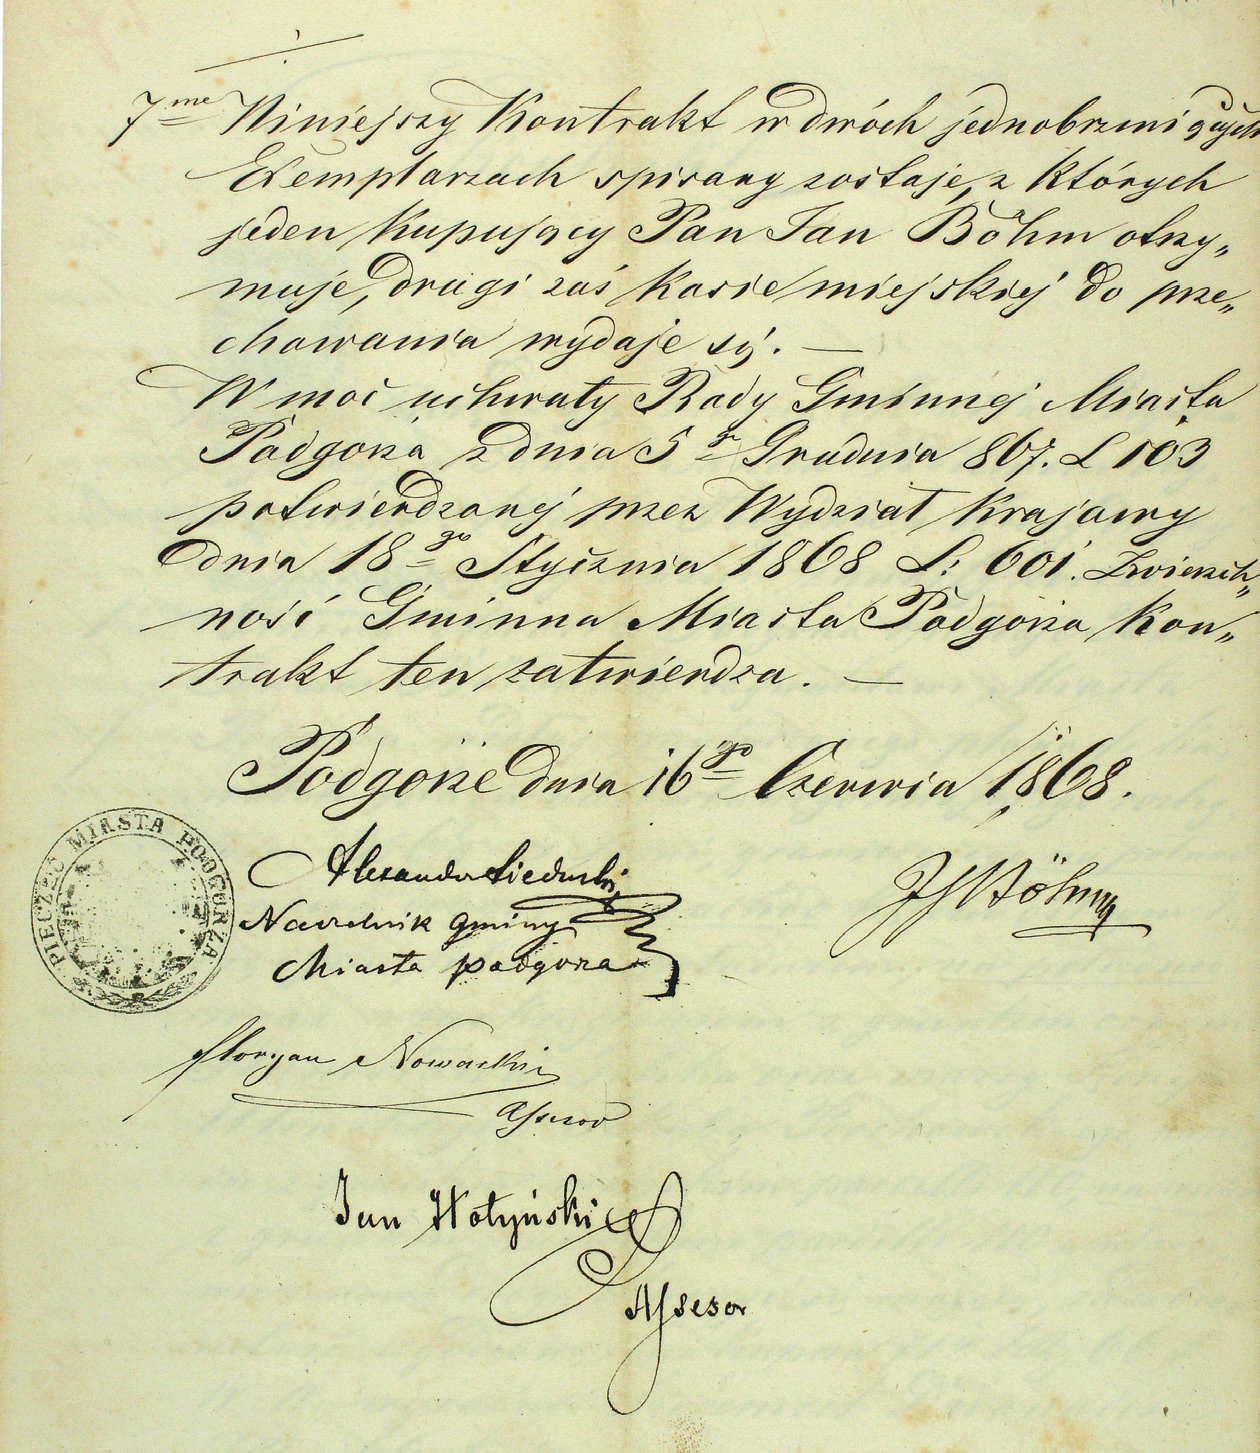 7me Niniejszy Kontrakt w dwóch jednobrzmiących
Exemplarzach spisany zostaje, z których
jeden kupujący Pan Jan Böhm otrzy„
muje, drugi zaś kasie miejskiej do prze„
chowania wydaje się. —
W moc uchwały Rady Gminnej Miasta
Podgórza z dnia 5go Grudnia 867. L 103
potwierdzonej przez Wydział krajowy
dnia 18go Stycznia 1868 L: 601. Zwierzch„
ność Gminna Miasta Podgórza kon„
trakt ten zatwierdza. —
Podgórze dnia 16go Czerwca 1868.
PIECZĘĆ MIASTA PODGÓRZA
Alexander
Böhm
Naczelnik Gminy
Miasta podgorza
Floryan Nowacki
Assesor
Jan Hołyński
Assesor